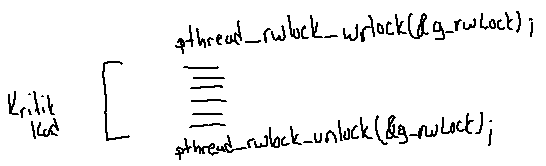 pthread_rwlock_wrlock(&g_rwlock);
Kritik
Kod
pthread_rwlock_unlock(&g_rwlock);